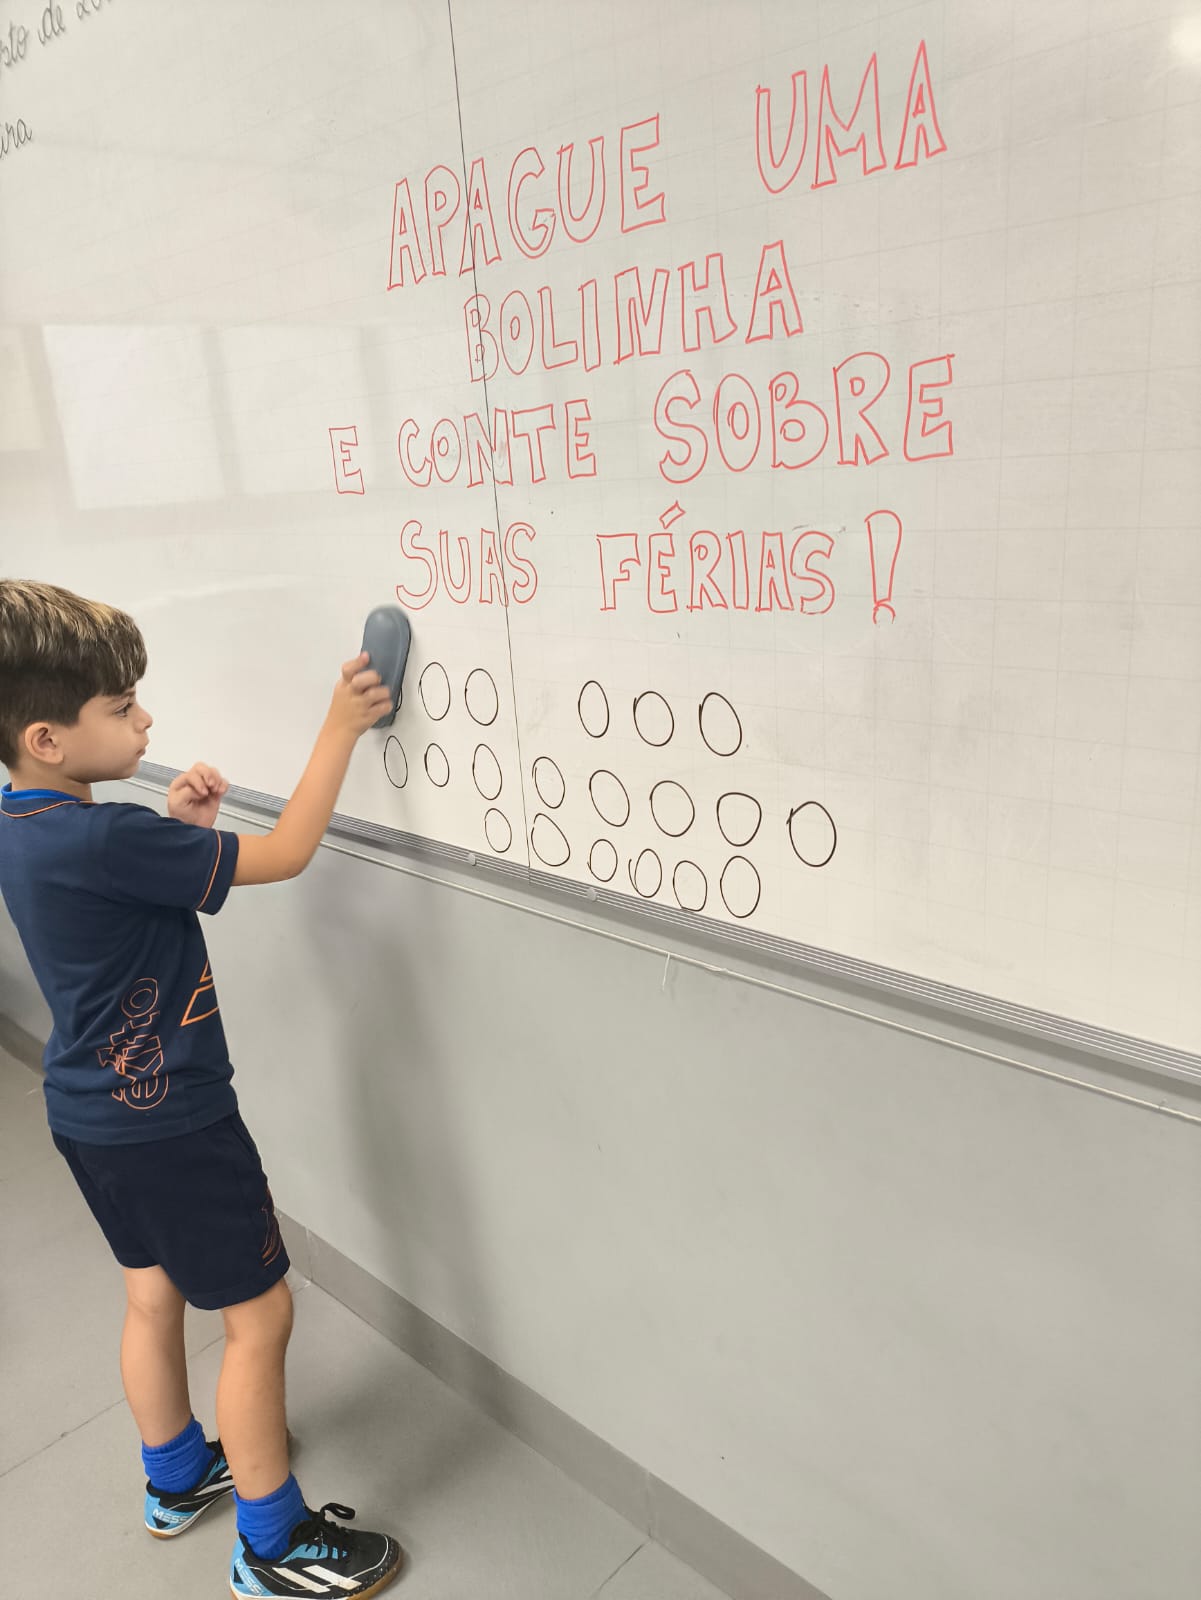 de
APAGUE UMA
BOLINHA
E CONTE SOBRE
SUAS FÉRIAS!
êxito
MESSI